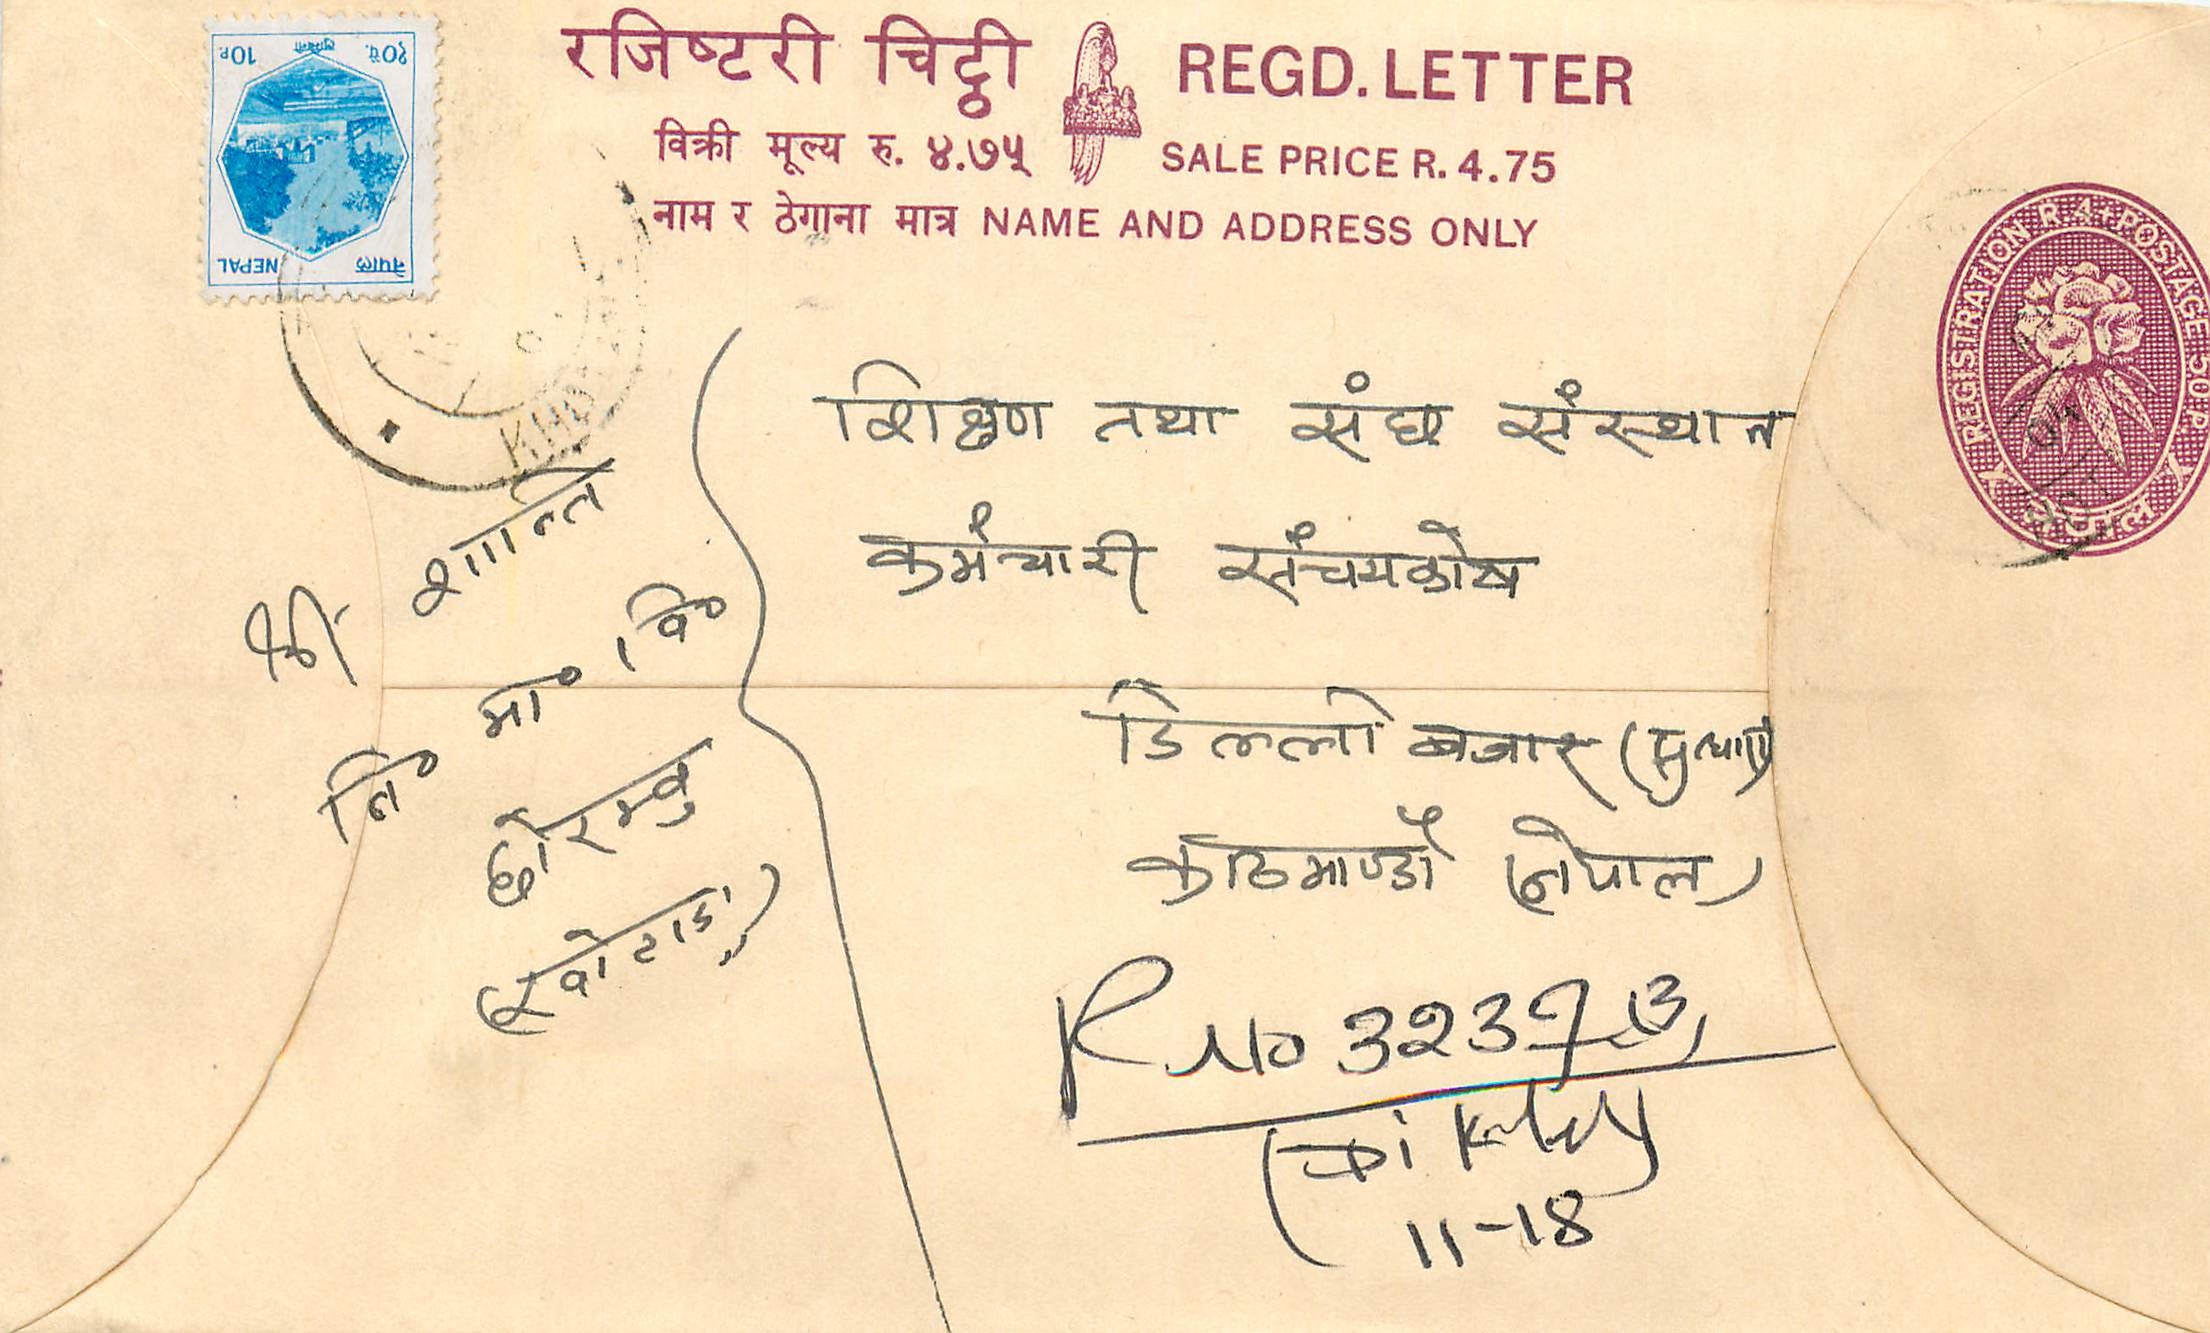 रजिष्टरी चिट्ठी REGD. LETTER
विक्री मूल्य रु. ४.७५ SALE PRICE R. 4.75
नाम र ठेगाना मात्र NAME AND ADDRESS ONLY
१०पै. लुम्बिनी 10P.
नेपाल NEPAL
REGISTRATION R.4+POSTAGE 50 P.
नेपाल
शिक्षण तथा संघ संस्थान
कर्मचारी संचयकोष
डिल्ली बजार
काठमाण्डौ (नेपाल)
श्री शान्ति
नि० मा० वि०
छोरम्बु
(खोटाङ)
R No 3237
11-18